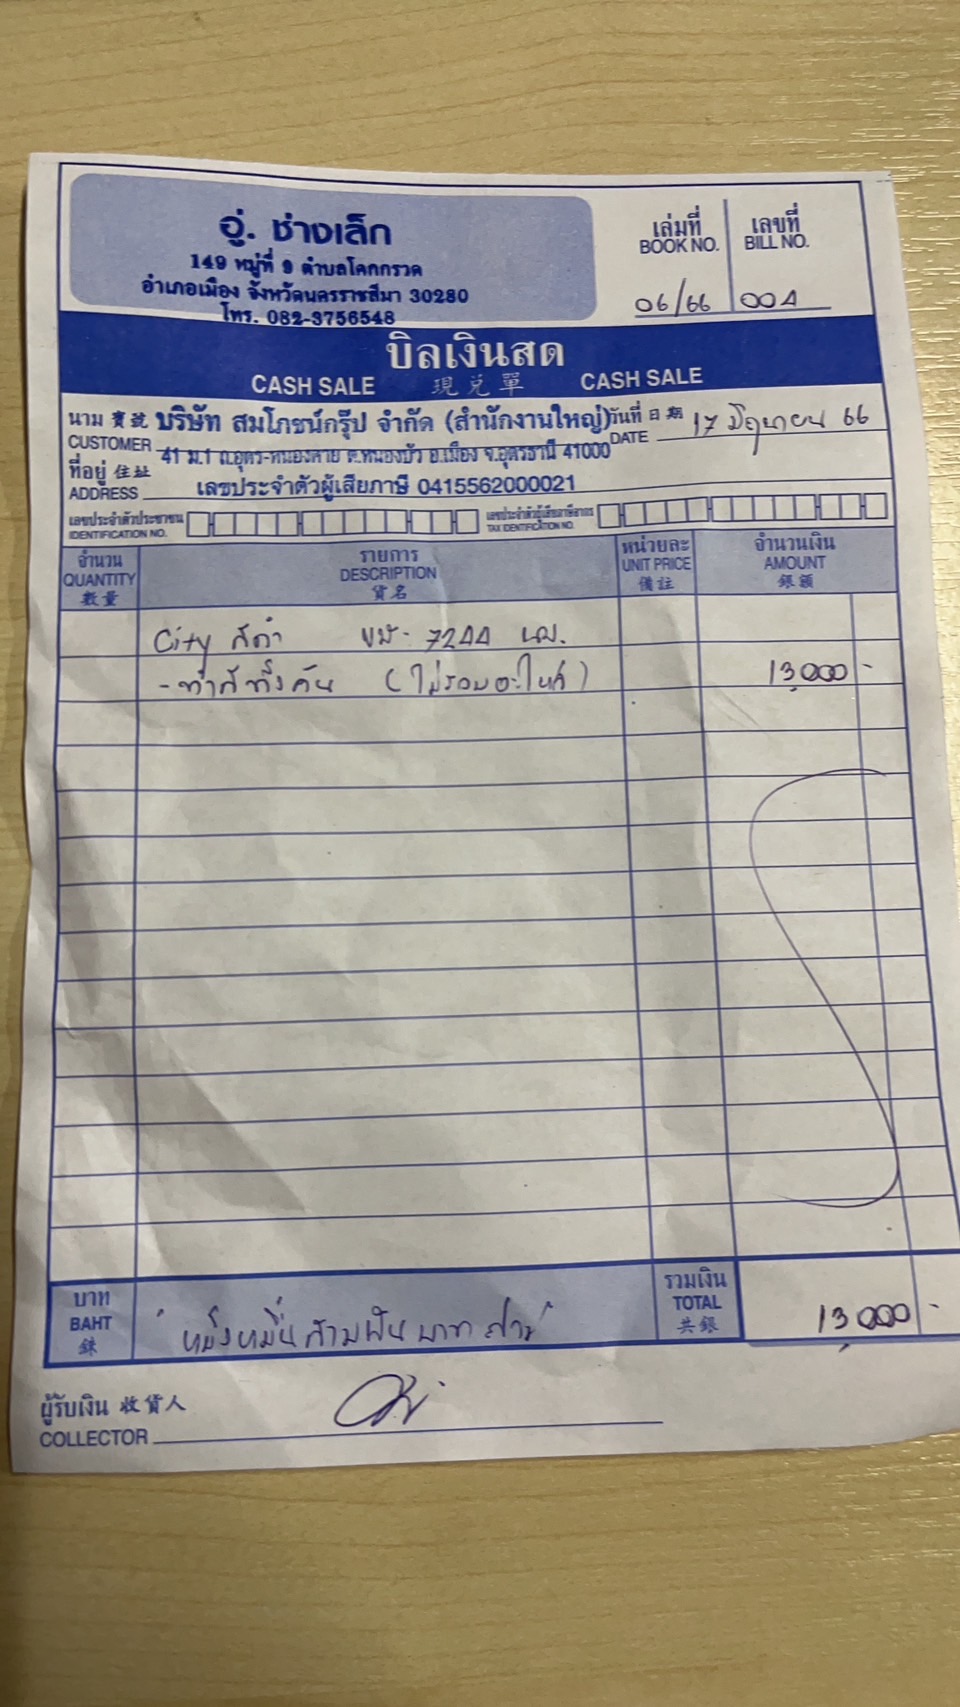 อู่. ช่างเล็ก
149 หมู่ที่ 9 ตำบลโคกกรวด
อำเภอเมือง จังหวัดนครราชสีมา 30280
โทร. 082-3756548
เล่มที่ เลขที่
BOOK NO. BILL NO.
06/66 004
บิลเงินสด
CASH SALE 現兌單 CASH SALE
นาม 寳號 บริษัท สมโภชน์กรุ๊ป จำกัด (สำนักงานใหญ่) วันที่ 日期 17 มิถุนายน 66
CUSTOMER 41 ม.1 ถ.อุดร-หนองคาย ต.หนองบัว อ.เมือง จ.อุดรธานี 41000 DATE
ที่อยู่ 住址
ADDRESS เลขประจำตัวผู้เสียภาษี 0415562000021
เลขประจำตัวประชาชน เลขประจำตัวผู้เสียภาษีอากร
IDENTIFICATION NO. TAX IDENTIFICATION NO.
จำนวน รายการ หน่วยละ จำนวนเงิน
QUANTITY DESCRIPTION UNIT PRICE AMOUNT
數量 貨名 備註 銀額
City สีดำ ขม- 7244 นม.
- ทำสีทั้งคัน (ไม่รวมอะไหล่) 13,000 -
บาท รวมเงิน
BAHT "หนึ่งหมื่นสามพันบาทถ้วน" TOTAL 13,000 -
銖 共銀
ผู้รับเงิน 收貨人
COLLECTOR